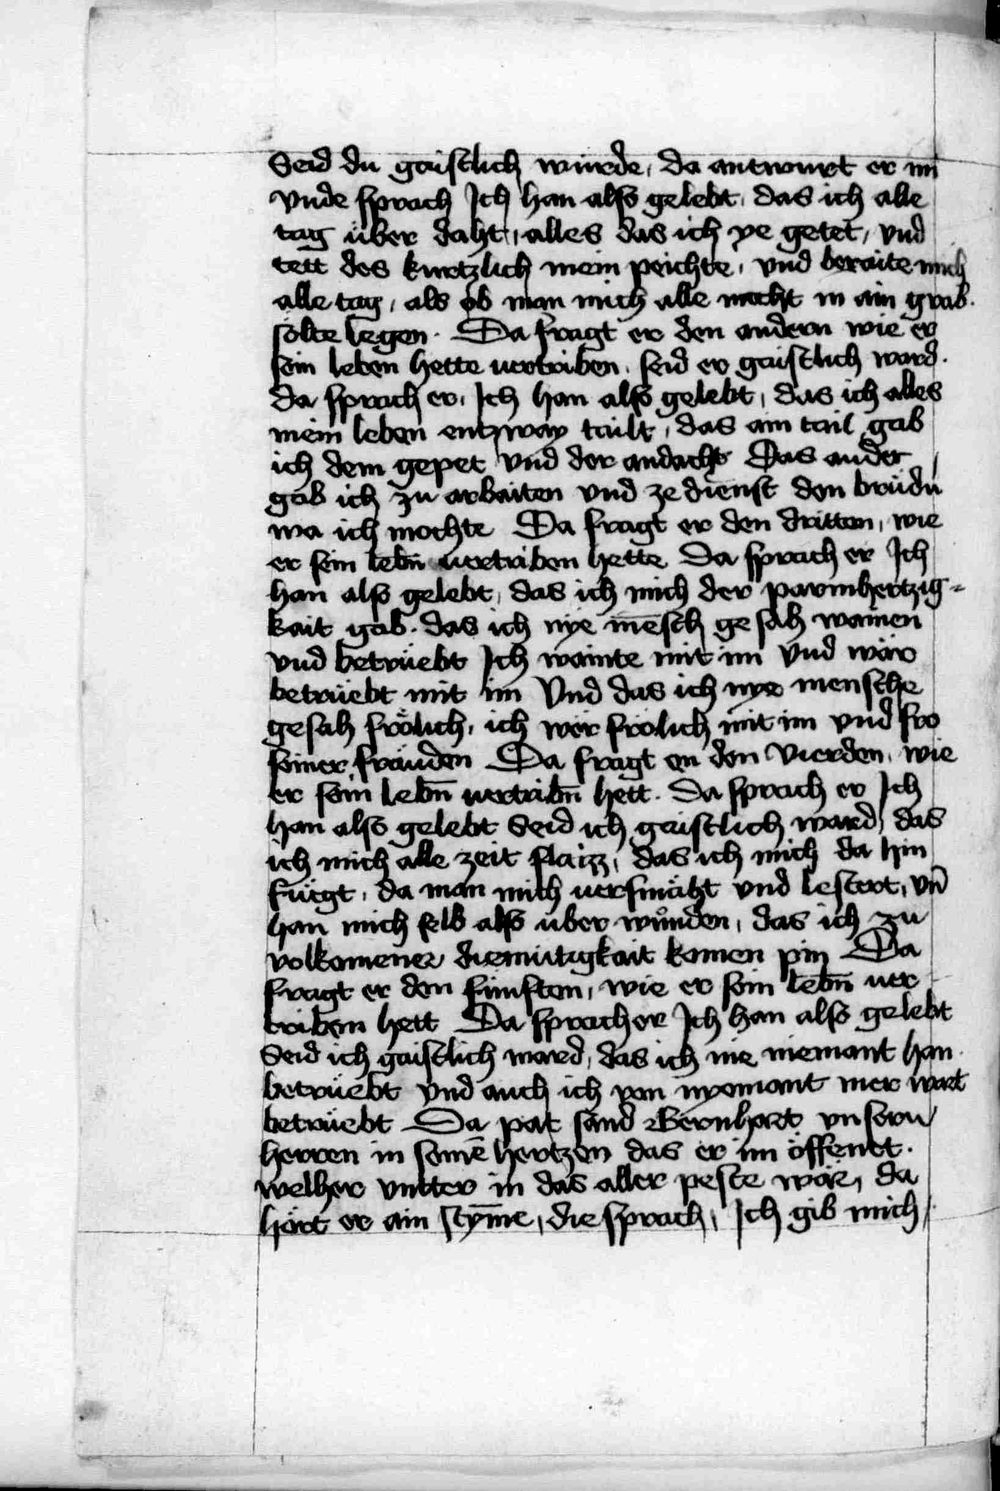 Seid du gaistlich wurde, da antwurt er im
vnde sprach Ich han also gelebt, das ich alle
tag über daht, alles das ich ye getet, vnd
tett des kurtzlich mein peichte, vnd beraite mich
alle tag, als ob man mich alle nacht in ain grab.
sölte legen. Da fragt er den andern wie er
sein leben hette uertriben, seid er gaistlich ward.
da sprach er, Ich han also gelebt, das ich alles
mein leben entzway tailt, das ain tail gab
ich dem gepet vnd der andacht Das ander
gab ich zu arbaiten vnd ze dienst den brüdn
wa ich mochte Da fragt er den dritten, wie
er sein lebn̄ uertriben hette Da sprach er Ich
han also gelebt, das ich mich der parmhertzig-
kait gab. das ich nye mēsch gesah wainen
vnd betrüebt Ich wainte mit im vnd wär
betrüebt mit im Vnd das ich nye mensche
gesah frölich, ich wër frölich mit im vnd fro
seiner fräuden Da fragt en den Vierden, wie
er sein lebn̄ uertribn̄ hett. Da sprach er Ich
han also gelebt Seid ich gaistlich ward, das
ich mich alle zeit flaizz, das ich mich da hin
füegt, da man mich uersmäht vnd lestert, vn̄
han mich selb also über wunden, das ich zu
volkomener diemütigkait komen pin Da
fragt er den fünften, wie er sein lebn̄ uer
triben hett Da sprach er Ich han also gelebt
Seid ich gaistlich ward, das ich nie niemant han
betrüebt vnd auch ich von nyemant mer wart
betrüebt Da pat sand Bernhart vnsern
herren in seinē hertzen das er im öffentt.
welher vntter in das aller peste wär, da
hört er ain stȳme, die sprach, Ich gib mich